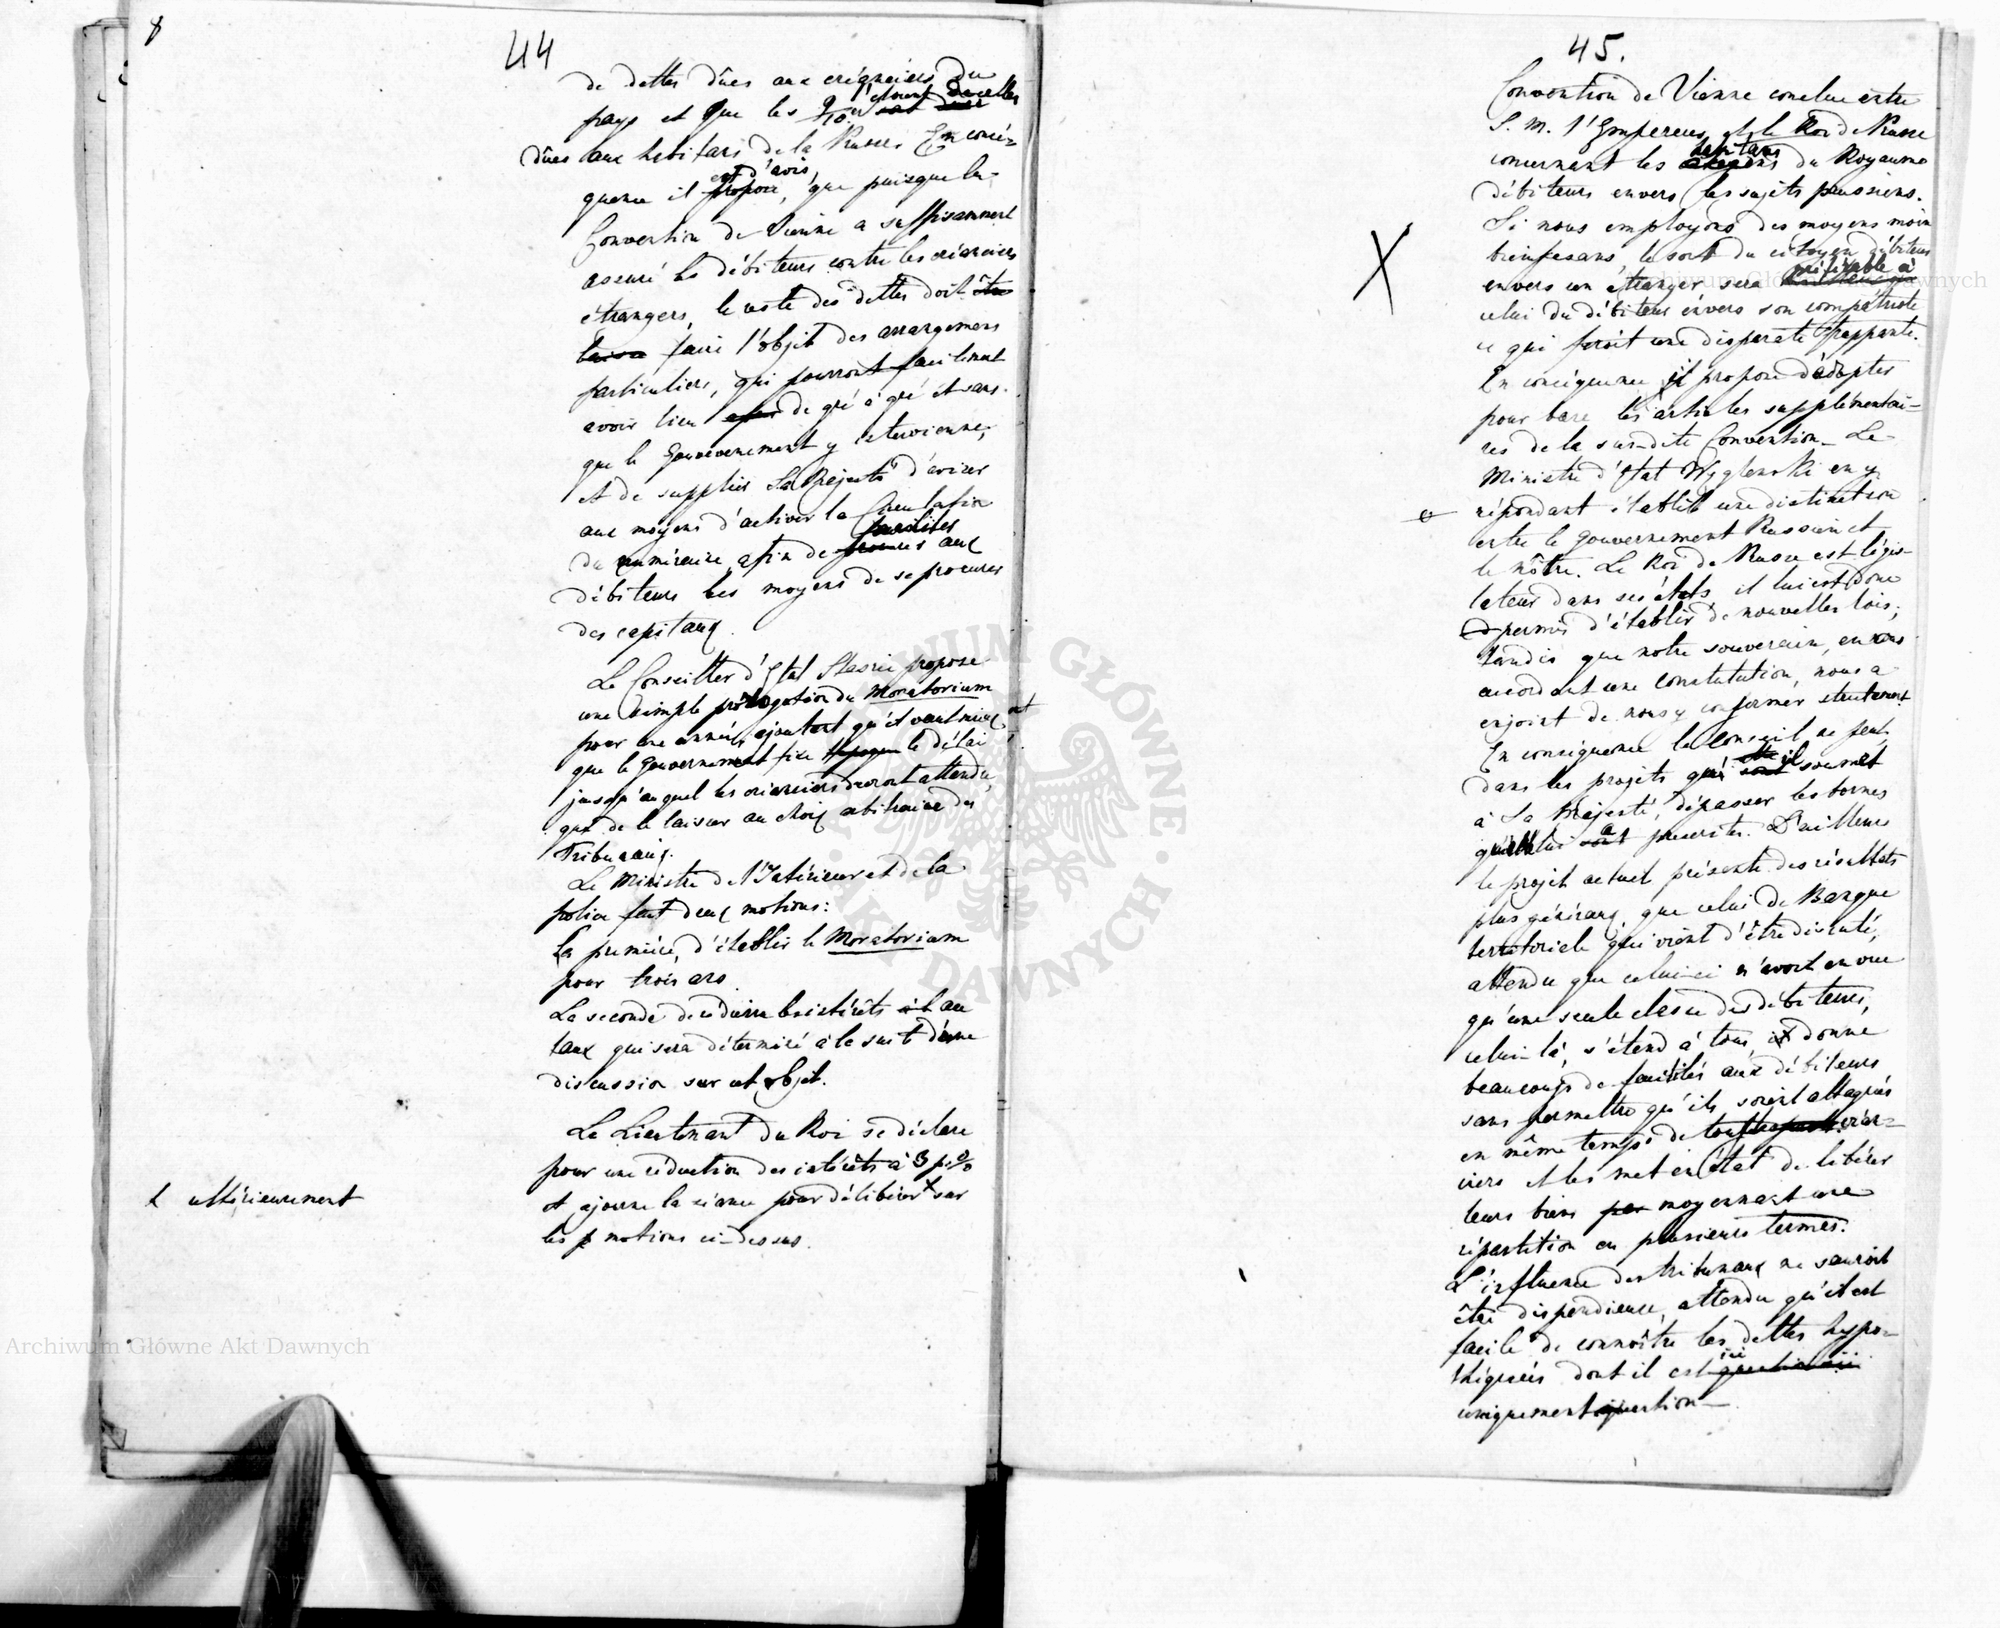 8
44
de dettes dûes aux créanciers du
pays et que les 9/10es étount de celles
dûes aux habitans de la Prusse. En consé-
quence il est d'avis, que puisque la
Convention de Vienne a suffisamment
assuré les débiteurs contre les créanciers
étrangers, le reste des dettes doit être
laissé faire l'objet des arrangemens
particuliers, qui pourront facilement
avoir lieu de gré à gré et sans
que le Gouvernement y intervienne,
et de supplier Sa Majesté d'aviser
aux moyens d'activer la Circulation
du numéraire afin de faciliter aux
débiteurs les moyens de se procurer
des capitaux.
Le Conseiller d'Etat Staszic propose
une simple prolongation du Moratorium
pour une année, ajoutant qu'il vaut mieux
que le Gouvernement fixe le délai
jusqu'auquel les créanciers devront attendre,
que de le laisser au choix arbitraire des
Tribunaux.
Le Ministre de l'Intérieur et de la
police fait deux motions:
La première, d'établir le Moratorium
pour trois ans
La seconde de réduire les intérêts au
taux qui sera déterminé à la suite d'une
discussion sur cet objet.
Le Lieutenant du Roi se déclare
pour une réduction des intérêts à 3 p%
et ajourne la séance pour délibérer sur
ultérieurement
les motions ci-dessus.
45.
Convention de Vienne conclue entre
S. M. l'Empereur et le Roi de Prusse
concernant les habitans du Royaume
débiteurs envers les sujets prussiens.
Si nous employons des moyens moins
bienfesans, le sort du citoyen débiteur
envers un étranger sera préférable à
celui du débiteur envers son compatriote
ce qui feroit une disparate frappante.
En conséquence il propose d'adopter
pour base les articles supplémentai-
res de la sus-dite Convention. Le
Ministre d'Etat Wyglenski en y
répondant établit une distinction
entre le Gouvernement Prussien et
le nôtre. Le Roi de Prusse est légis-
lateur dans ses états il lui est donc
permis d'établir de nouvelles lois;
tandis que notre souverain, en nous
accordant une constitution, nous a
enjoint de nous y conformer strictement.
En conséquence le Conseil ne peut,
dans les projets qu'il soumet
à Sa Majesté, dépasser les bornes
qu'elle lui a prescrites. D'ailleurs
le projet actuel présente des résultats
plus généraux, que celui de Banque
territoriale qui vient d'être discuté,
attendu que celui-ci n'avoit en vue
qu'une seule classe des débiteurs,
celui-là, s'étend à tous, donne
beaucoup de facilités aux débiteurs
sans permettre qu'ils soient attaqués
en même temps de créan-
ciers et les met en état de libérer
leurs biens moyennant une
répartition en plusieurs termes.
L'influence des tribunaux ne sauroit
être dispendieuse, attendu qu'il est
facile de connoître les dettes hypo-
théquées dont il est ici
uniquement question
Archiwum Główne Akt Dawnych
Archiwum Główne Akt Dawnych
ARCHIWUM GŁÓWNE · AKT DAWNYCH ·